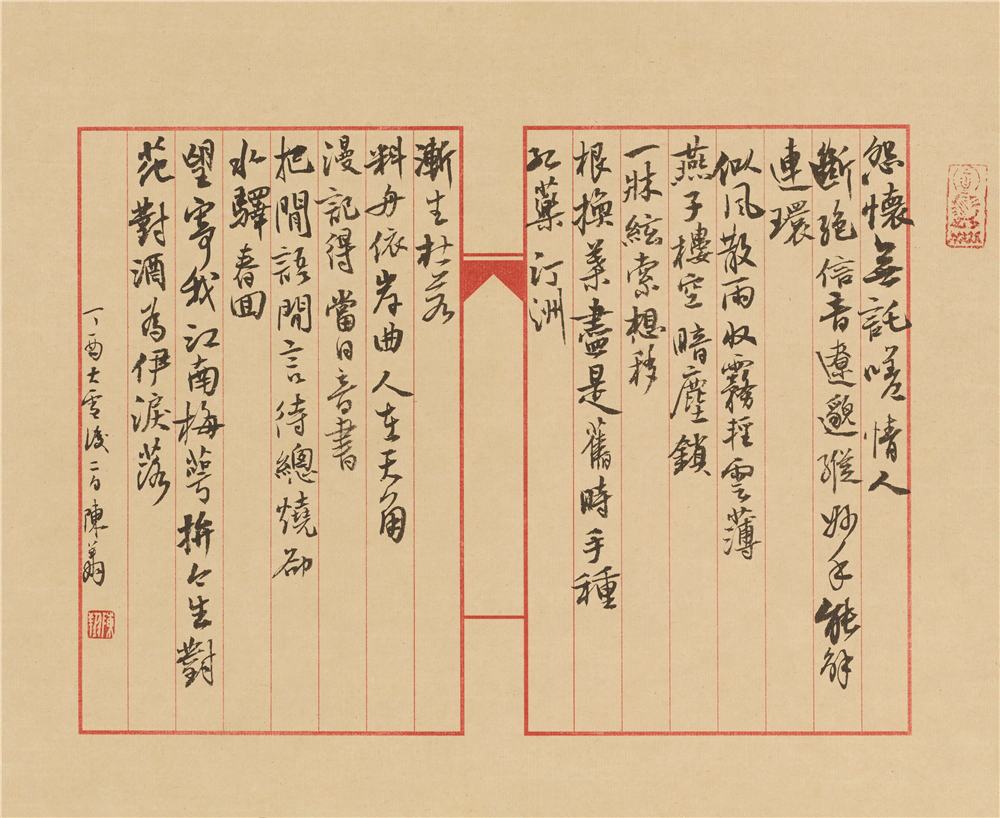 怨懷無託嗟情人
斷絕信音遼邈縱妙手能解
連環
似風散雨收霧輕雲薄
燕子樓空暗塵鎖
一牀絃索想移
根換葉盡是舊時手種
紅藥汀洲
漸生杜若
料舟依岸曲人在天角
漫記得當日音書
把閒語閒言待總燒卻
水驛春回
望寄我江南梅萼拚今生對
花對酒為伊淚落
丁酉大雪後二日陳